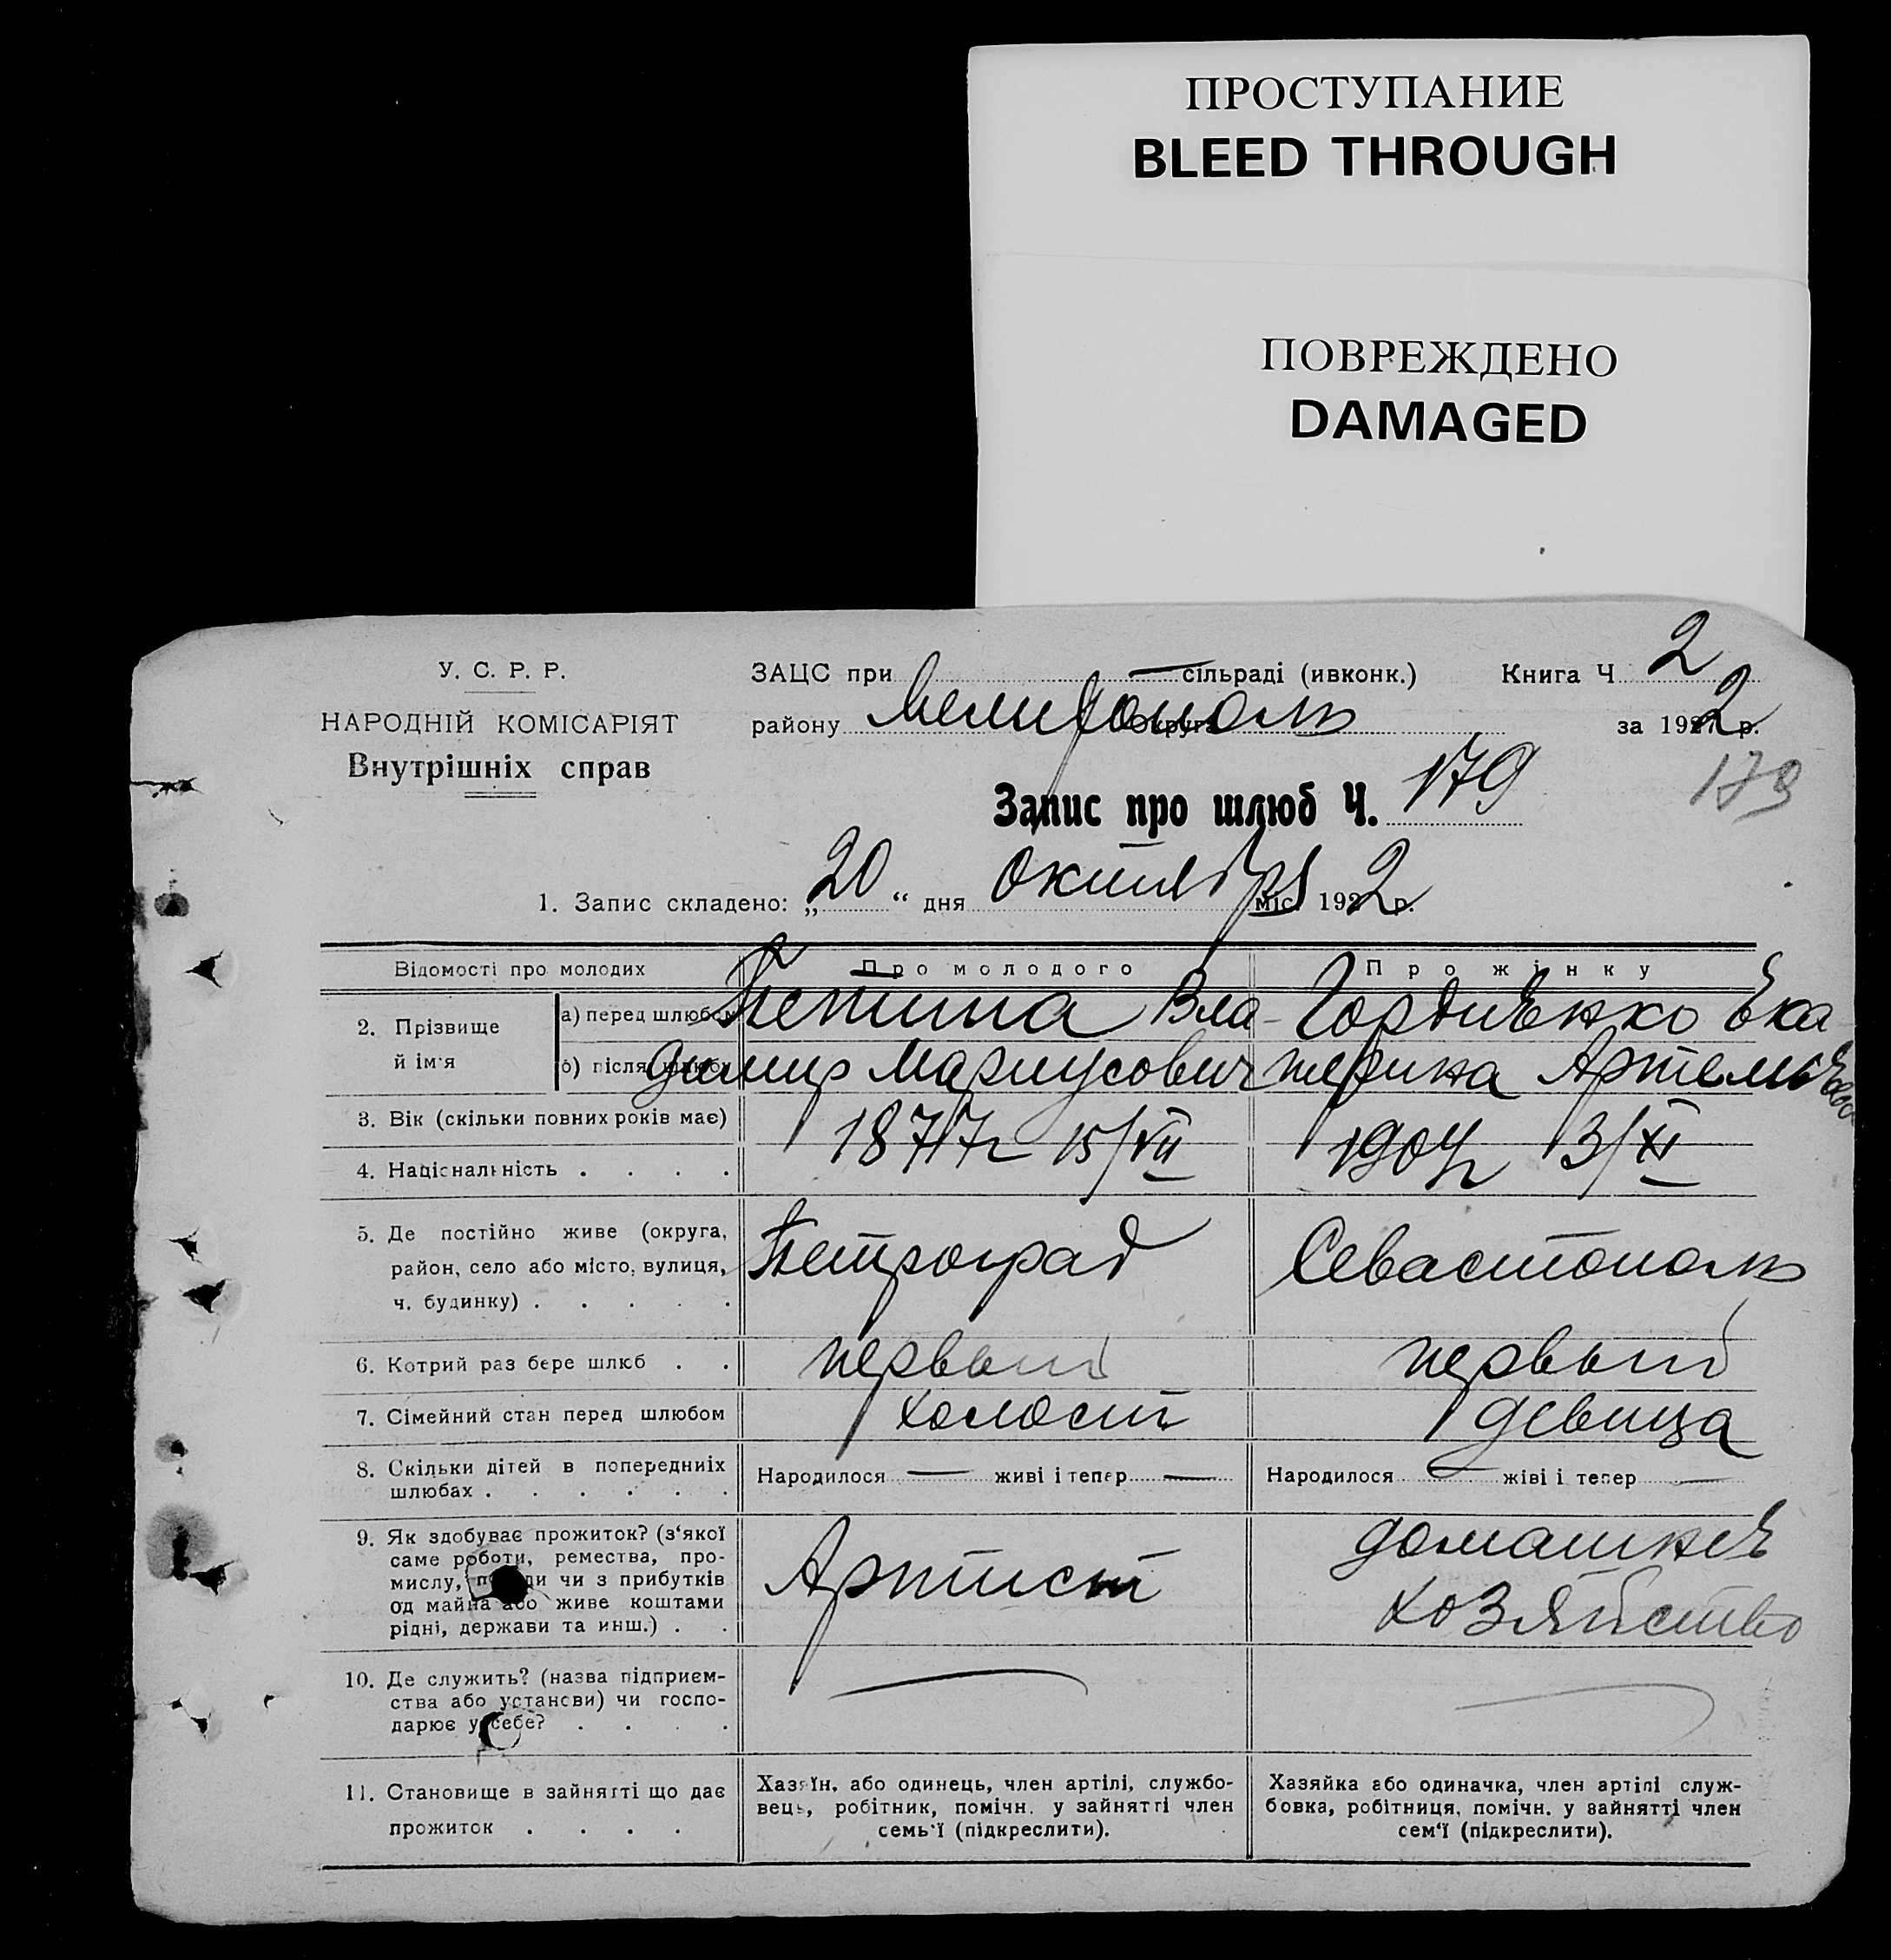 ПРОСТУПАНИЕ
BLEED THROUGH
ПОВРЕЖДЕНО
DAMAGED
У. С. Р. Р.
НАРОДНІЙ КОМІСАРІЯТ
Внутрішніх справ
ЗАЦС при — сільраді (ивконк.) Книга Ч 2
району Мелитополь Округа за 1922 р.
Запис про шлюб Ч. 179
1. Запис складено: „20“ дня октября міс. 1922 р.
Відомості про молодих Про молодого Про жінку
2. Прізвище й ім'я
а) перед шлюбом Петипа Вла- Гордиенко Ека-
б) після шлюбу димир Мариусович терина Артемьевна
3. Вік (скільки повних років має) 1877 г 15/VII 1904 г 13/XI
4. Національність . . . .
5. Де постійно живе (округа,
район, село або місто, вулиця, Петроград Севастополь
ч. будинку) . . . . .
6. Котрий раз бере шлюб . . первый первый
7. Сімейний стан перед шлюбом холост девица
8. Скільки дітей в попередниіх Народилося — живі і тепер — Народилося — жіві і тепер —
шлюбах . . . . . .
9. Як здобуває прожиток? (з‘якої домашнее
саме роботи, ремества, про- Артист хозяйство
мислу, чи з прибутків
од майна або живе коштами
рідні, держави та инш.) . .
10. Де служить? (назва підприєм-
ства або установи) чи госпо-
дарює у себе? . . . .
11. Становище в зайнятті що дає
прожиток . . . .
Хазяїн, або одинець, член артілі, службо-
вець, робітник, помічн. у зайнятті член
семь‘ї (підкреслити).
Хазяйка або одиначка, член артілі служ-
бовка, робітниця, помічн. у зайнятті член
сем‘ї (підкреслити).